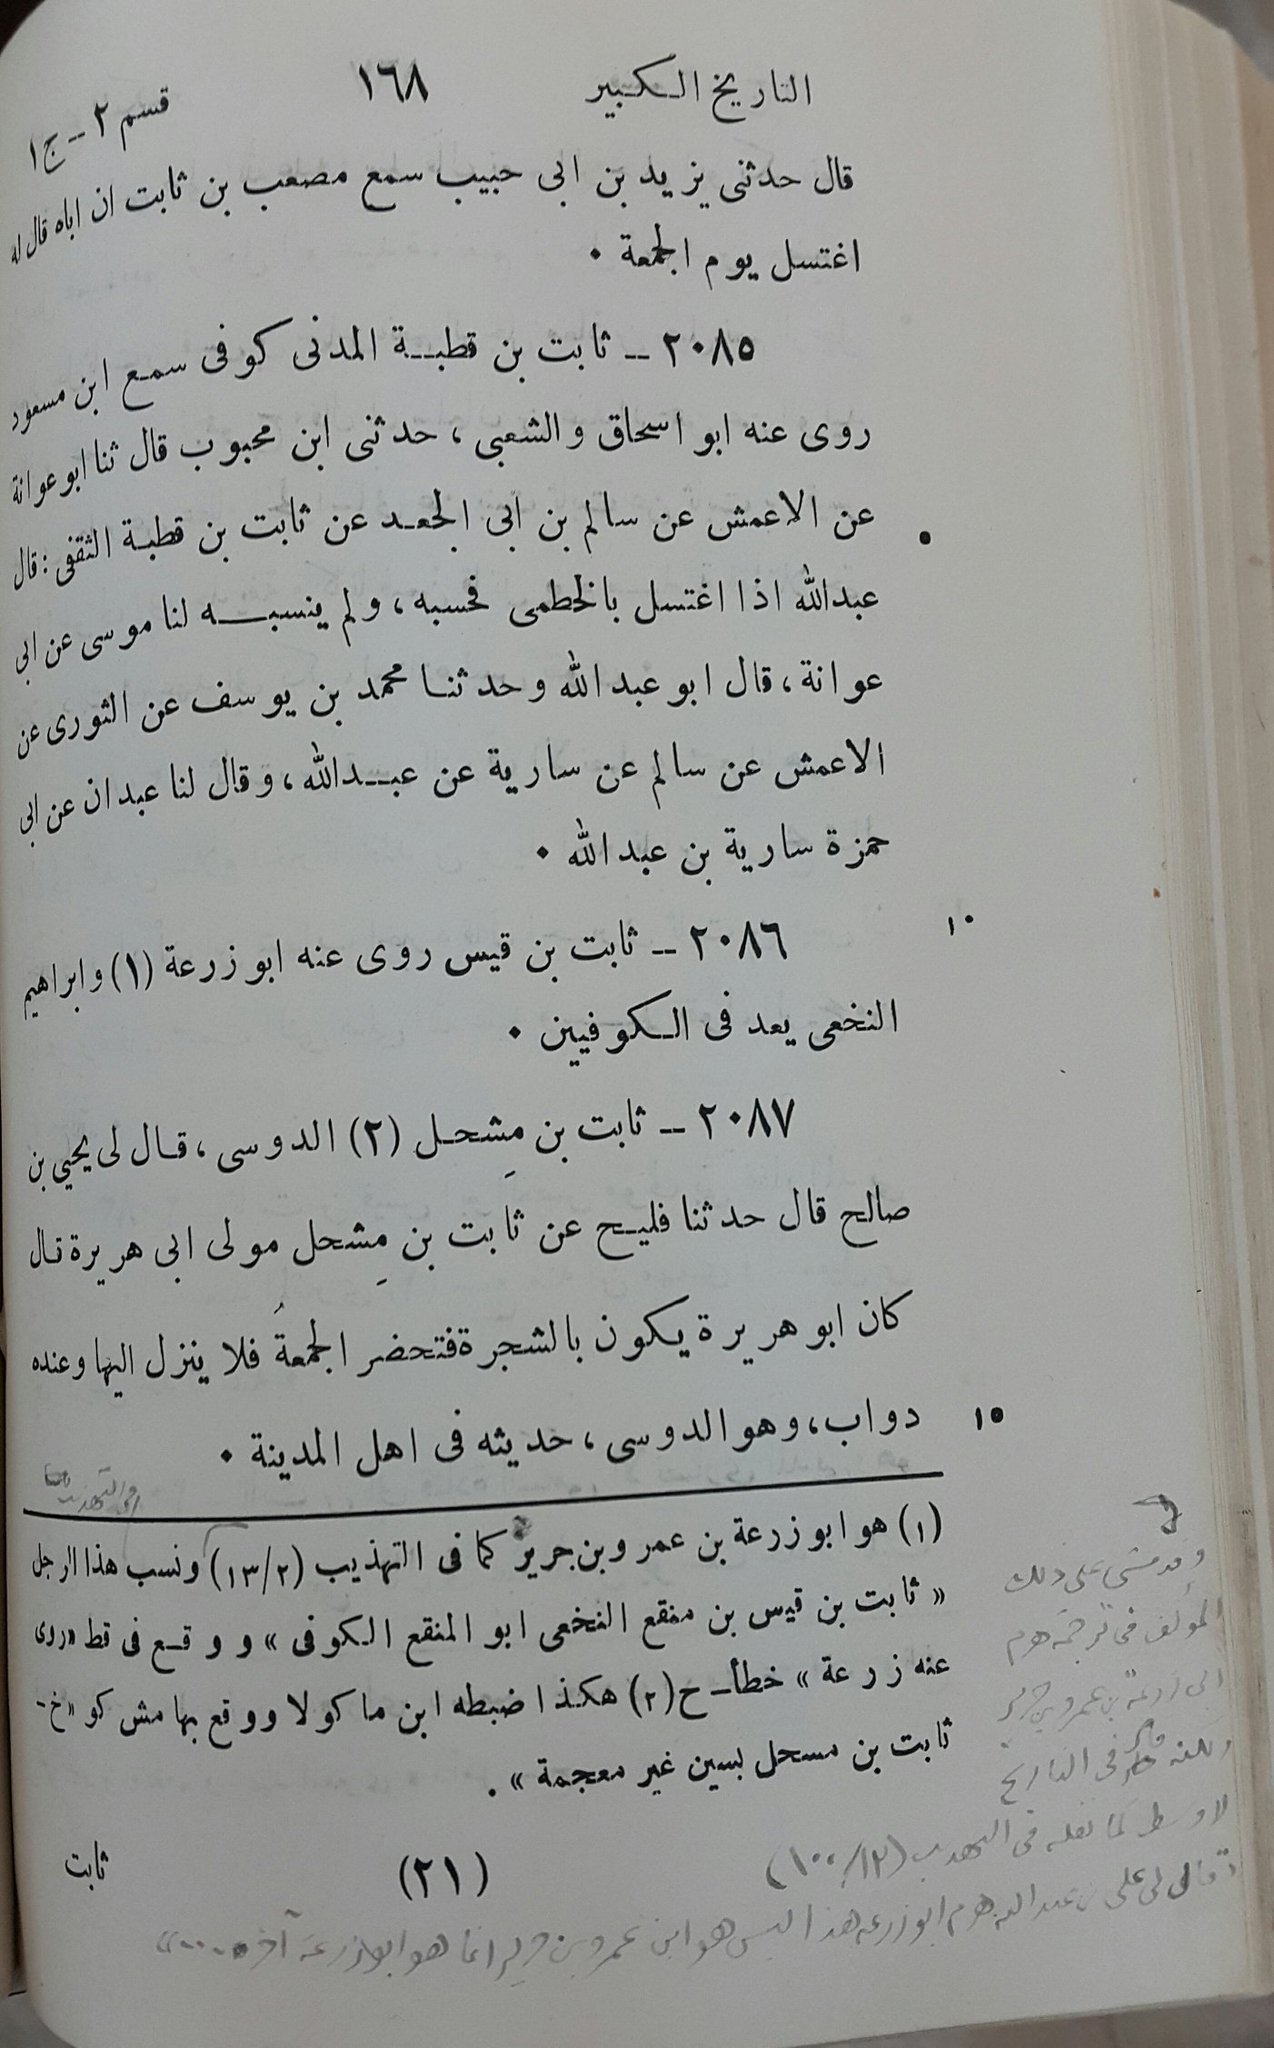 التاريخ الكبير ١٦٨ قسم ٢ – ج ١
قال حدثنى يزيد بن ابى حبيب سمع مصعب بن ثابت ان اباه قال له
اغتسل يوم الجمعة •
٢٠٨٥ – ثابت بن قطبة المدنى كوفى سمع ابن مسعود
روى عنه ابو اسحاق والشعبى ، حدثنى ابن محبوب قال ثنا ابو عوانة
عن الاعمش عن سالم بن ابى الجعد عن ثابت بن قطبة الثقفى : قال ٥
عبدالله اذا اغتسل بالخطمى فحسبه ، ولم ينسبه لنا موسى عن ابى
عوانة ، قال ابو عبدالله وحدثنا محمد بن يوسف عن الثورى عن
الاعمش عن سالم عن سارية عن عبدالله ، وقال لنا عبدان عن ابى
حمزة سارية بن عبدالله •
٢٠٨٦ – ثابت بن قيس روى عنه ابو زرعة (١) وابراهيم ١٠
النخعى يعد فى الكوفيين •
٢٠٨٧ – ثابت بن مِشحل (٢) الدوسى ، قال لى يحيى بن
صالح قال حدثنا فليح عن ثابت بن مِشحل مولى ابى هريرة قال
كان ابو هريرة يكون بالشجرة فتحضر الجمعةُ فلا ينزل اليها وعنده
دواب ، وهو الدوسى ، حديثه فى اهل المدينة • ١٥
(١) هو ابو زرعة بن عمرو بن جرير كما فى التهذيب (١٣/٢) ونسب هذا الرجل
« ثابت بن قيس بن منقع النخعى ابو المنقع الكوفى » ووقع فى قط «روى
عنه زرعة » خطأ – ح (٢) هكذا ضبطه ابن ماكولا ووقع بهامش كو « خ –
ثابت بن مسحل بسين غير معجمة » .
(٢١) ثابت
وقد مشى على ذلك
المؤلف فى ترجمة هرم
ابى زرعة بن عمرو بن جرير
ولكنه فى التاريخ
الاوسط كما نقله فى التهذيب (١٢/١٠٠)
قال لى على بن عبد الله هرم ابو زرعة هذا ليس هو ابن عمرو بن جرير انما هو ابو زرعة آخر